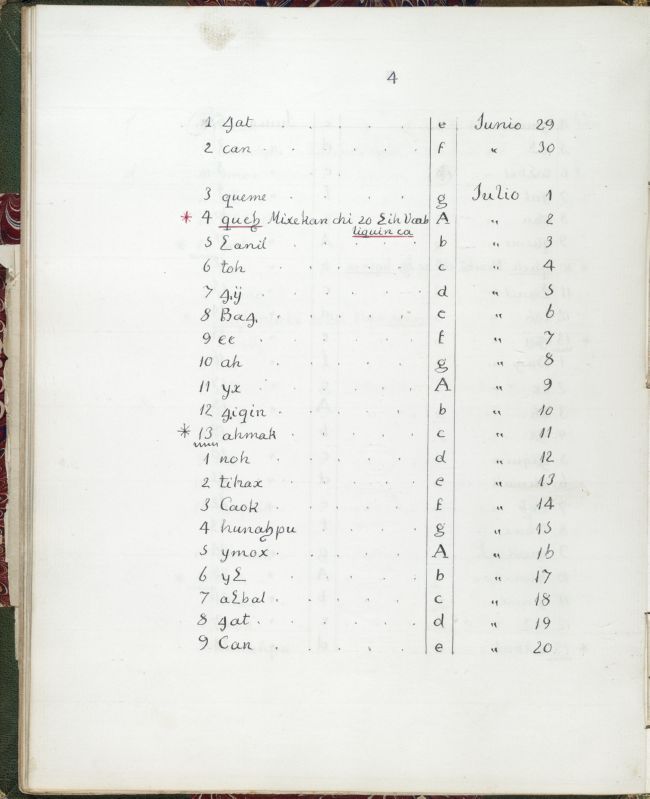 4
1 gat . . . . . e Junio 29
2 can . . . . . f " 30
3 queme . . . . g Julio 1
* 4 queh Mixekan chi 20 Ɛih Vaab A " 2
liquin ca
5 Ɛanil . . . . b " 3
6 toh . . . . . c " 4
7 gij . . . . . d " 5
8 Bag . . . . . e " 6
9 ee . . . . . f " 7
10 ah . . . . . g " 8
11 yx . . . . . A " 9
12 giqin . . . . b " 10
* 13 ahmak . . . . c " 11
1 noh . . . . . d " 12
2 tihax . . . . e " 13
3 Caok . . . . f " 14
4 hunahpu . . . g " 15
5 ymox . . . . A " 16
6 yƐ . . . . . b " 17
7 aƐbal . . . . c " 18
8 gat . . . . . d " 19
9 Can . . . . . e " 20